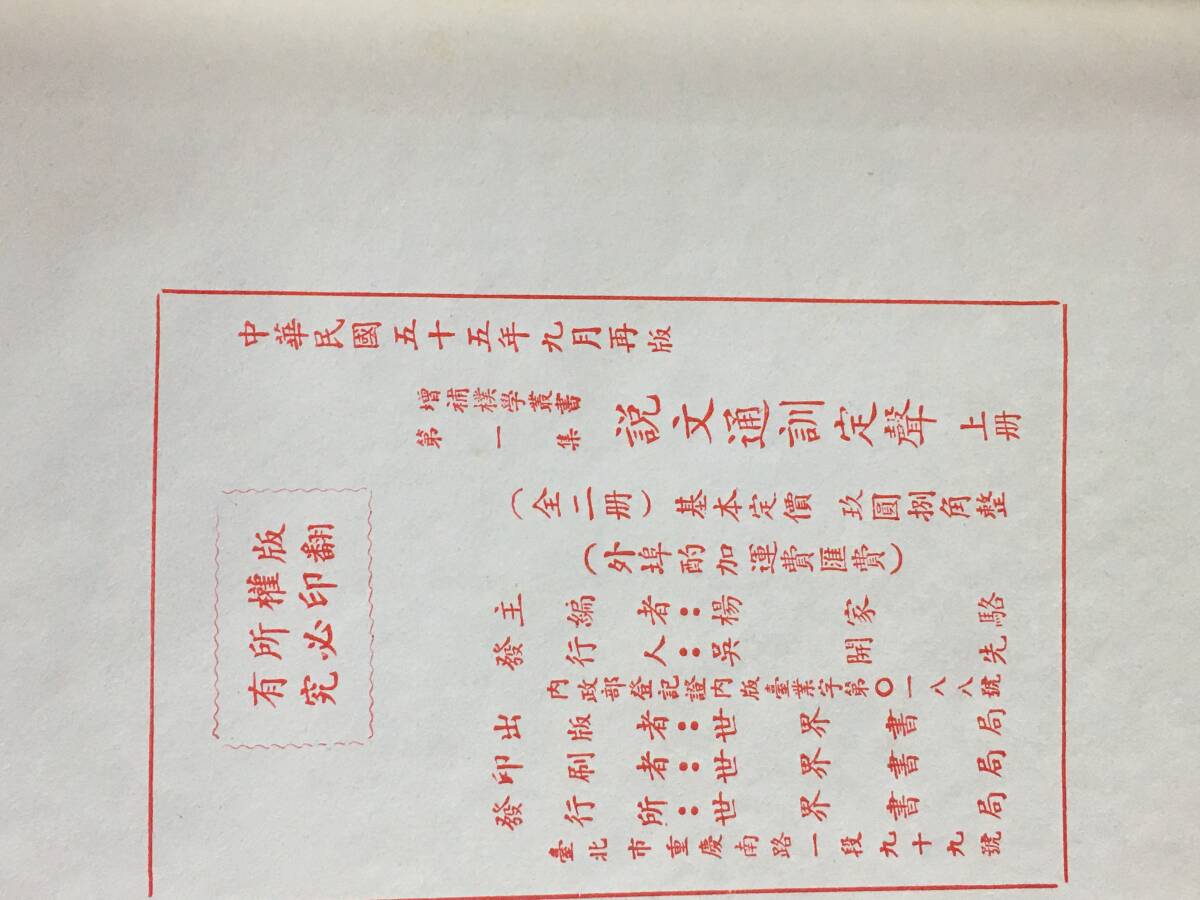 中華民國五十五年九月再版
增補樸學叢書
第一集
説文通訓定聲 上册
(全二册)基本定價 玖圓捌角整
(外埠酌加運費匯費)
主編者：楊家駱
發行人：吳開先
内政部登記證内版臺業字第〇一八八號
出版者：世界書局
印刷者：世界書局
發行所：世界書局
臺北市重慶南路一段九十九號
版權所有
翻印必究